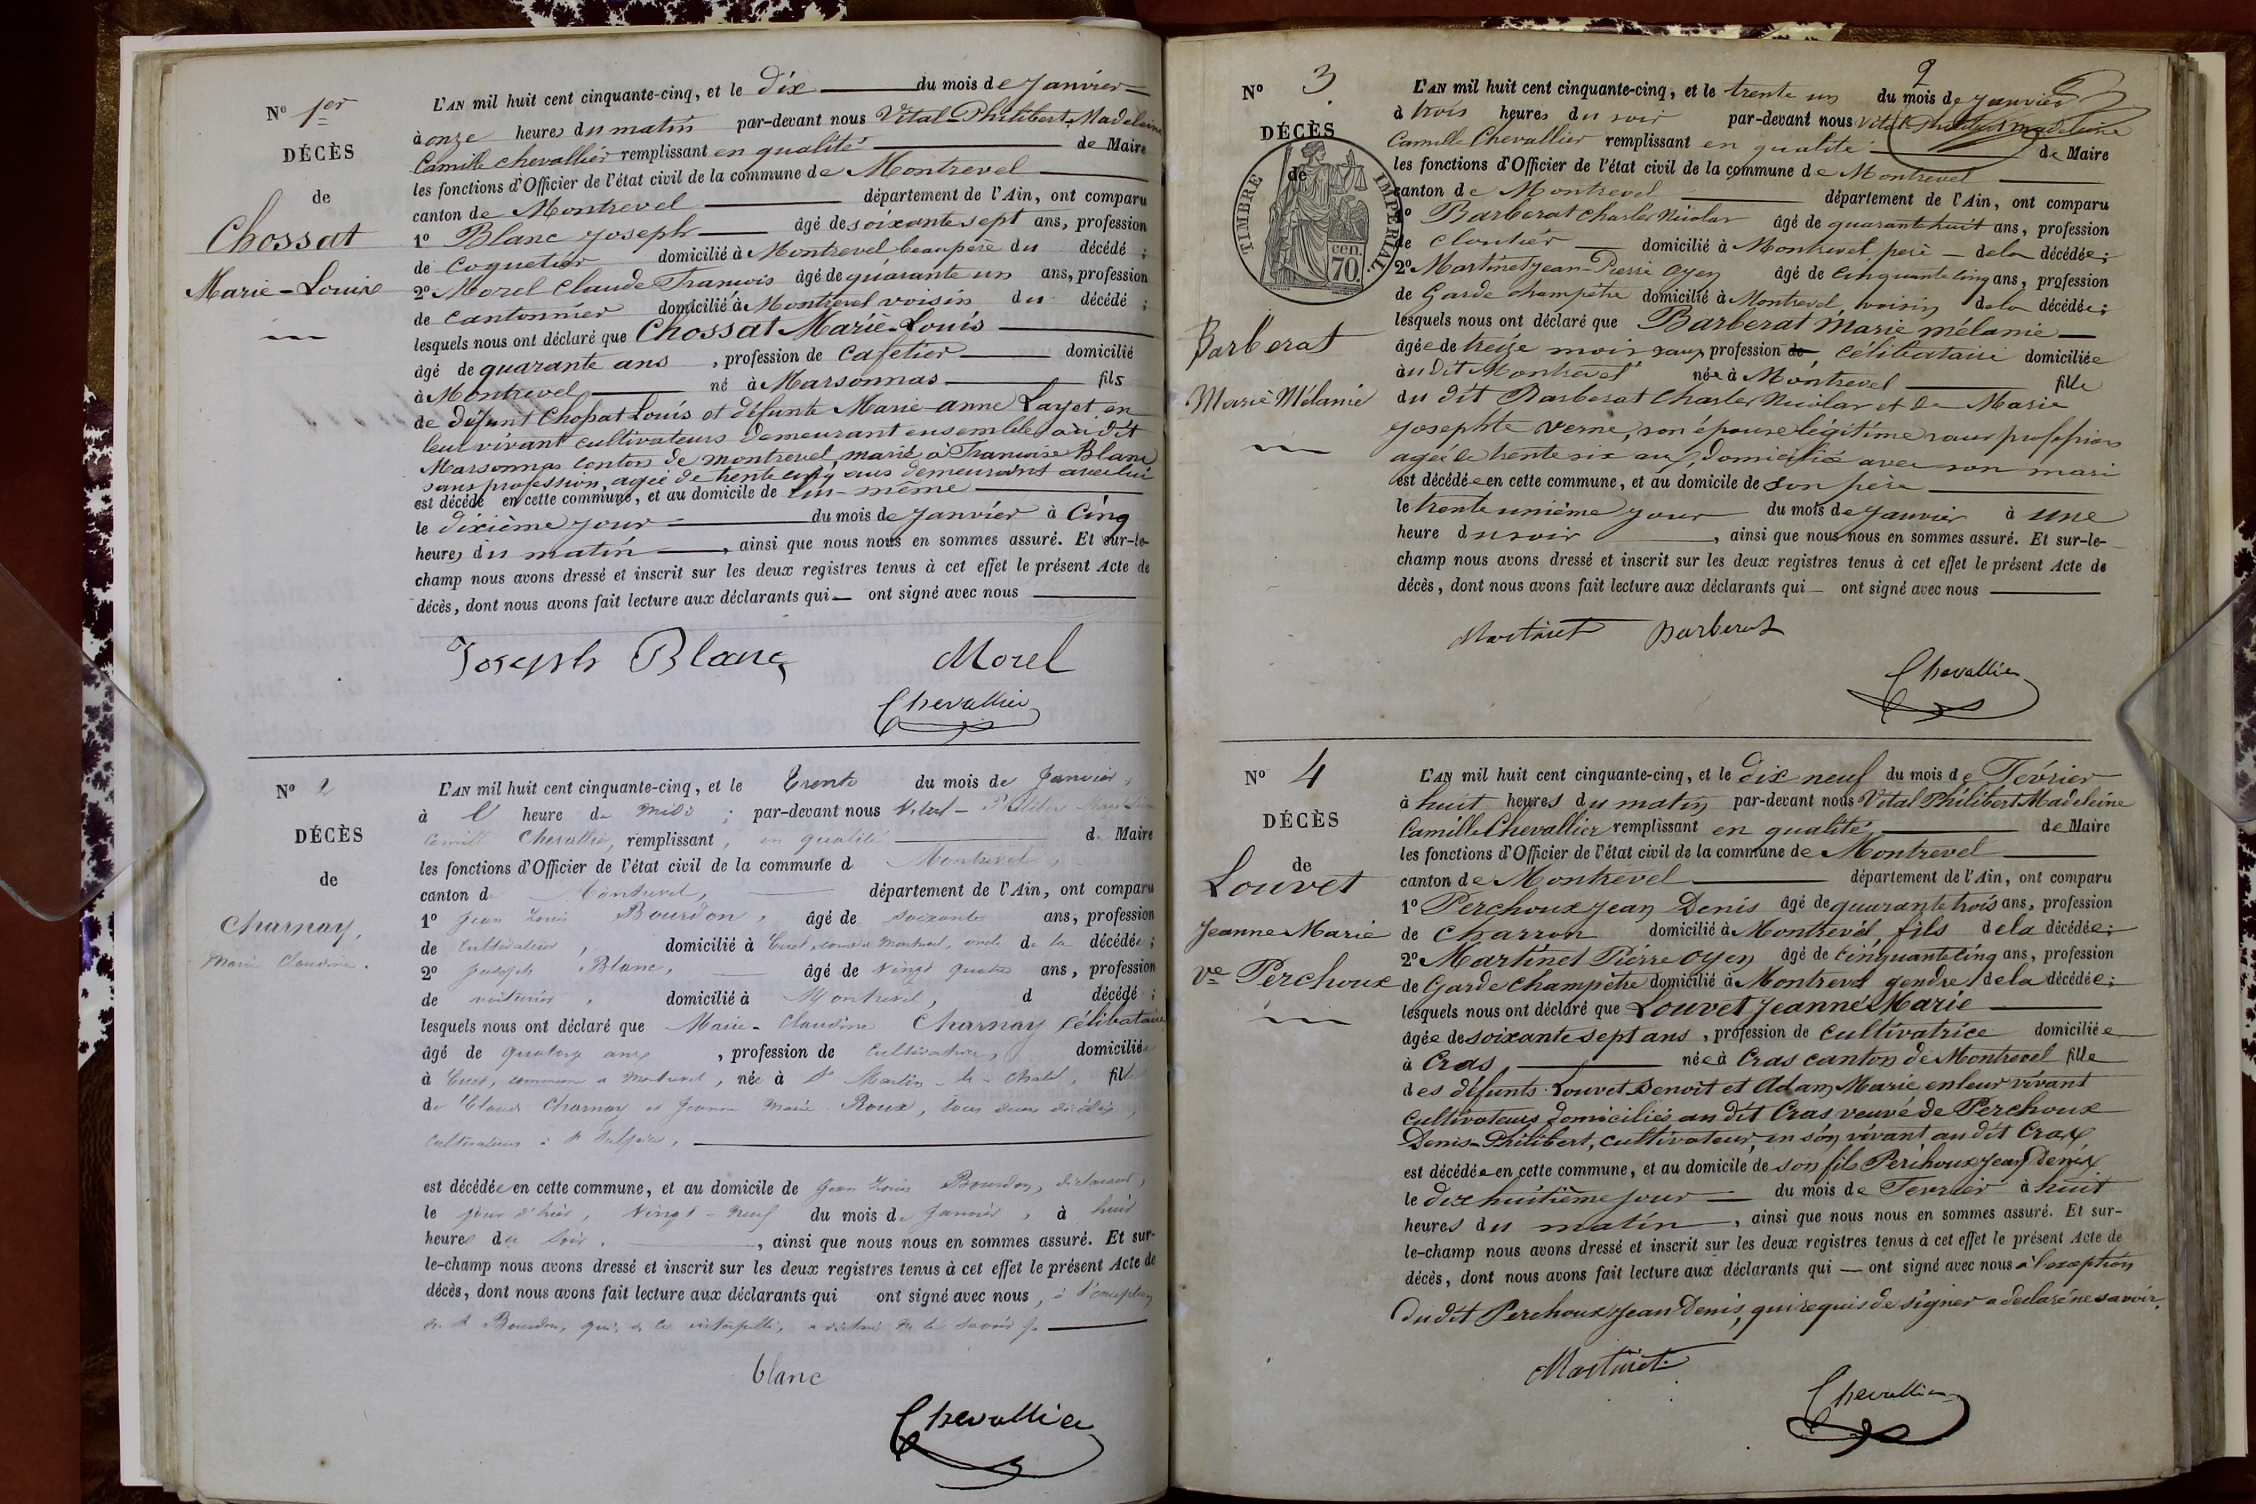 N° 1er
DÉCÈS
de
Chossat
Marie-Louis
L'AN mil huit cent cinquante-cinq, et le dix du mois de Janvier
à onze heures du matin par-devant nous Vital-Philibert Madeleine
Camille Chevallier remplissant en qualité de Maire
les fonctions d'Officier de l'état civil de la commune de Montrevel
canton de Montrevel département de l'Ain, ont comparu
1° Blanc Joseph âgé de soixante sept ans, profession
de coquetier domicilié à Montrevel beaupère du décédé ;
2° Morel Claude François âgé de quarante un ans, profession
de cantonnier domicilié à Montrevel voisin du décédé ;
lesquels nous ont déclaré que Chossat Marie-Louis
âgé de quarante ans, profession de cafetier domicilié
à Montrevel né à Marsonnas fils
de défunt Chossat Louis et défunte Marie-Anne Layet en
leur vivant cultivateurs demeurant ensemble au dit
Marsonnas canton de Montrevel marié à Françoise Blanc
sans profession, agée de trente cinq ans demeurant avec lui
est décédé en cette commune, et au domicile de lui-même
le dixième jour du mois de Janvier à Cinq
heures du matin, ainsi que nous nous en sommes assuré. Et sur-le-
champ nous avons dressé et inscrit sur les deux registres tenus à cet effet le présent Acte de
décès, dont nous avons fait lecture aux déclarants qui ont signé avec nous
Joseph Blanc Morel
Chevallier
N° 2
DÉCÈS
de
Charnay,
Marie Claudine.
L'AN mil huit cent cinquante-cinq, et le trente du mois de Janvier,
à l' heure de midi ; par-devant nous Vital-Philibert
Camille Chevallier, remplissant, en qualité de Maire
les fonctions d'Officier de l'état civil de la commune d Montrevel,
canton de Montrevel, département de l'Ain, ont comparu
1° Jean Louis Bourdon, âgé de soixante ans, profession
de Cultivateur, domicilié à Cuet, Montrevel, oncle de la décédée ;
2° Joseph Blanc, âgé de vingt quatre ans, profession
de voiturier, domicilié à Montrevel, d décédé ;
lesquels nous ont déclaré que Marie-Claudine Charnay célibataire
âgé de quatorze ans, profession de Cultivatrice, domiciliée
à Cuet, commune de Montrevel, née à St Martin-le-Chatel, fille
de Claude Charnay et Jeanne Marie Roux, tous deux décédés,
cultivateurs à St Sulpice,
est décédée en cette commune, et au domicile de Jean Louis Bourdon, déclarant,
le jour d'hier, vingt-neuf du mois de Janvier, à huit
heures du soir, ainsi que nous nous en sommes assuré. Et sur-
le-champ nous avons dressé et inscrit sur les deux registres tenus à cet effet le présent Acte de
décès, dont nous avons fait lecture aux déclarants qui ont signé avec nous, à l'exception
Bourdon, qui, de ce interpellé, a déclaré ne le savoir
blanc
Chevallier
2
N° 3
DÉCÈS
de
TIMBRE IMPERIAL.
70 cen.
Barberat
Marie Mélanie
L'AN mil huit cent cinquante-cinq, et le trente un du mois de Janvier
à trois heures du soir par-devant nous Vital Philibert Madeleine
Camille Chevallier remplissant en qualité de Maire
les fonctions d'Officier de l'état civil de la commune de Montrevel
canton de Montrevel département de l'Ain, ont comparu
1° Barberat Charles Nicolas âgé de quarante huit ans, profession
de cloutier domicilié à Montrevel père de la décédée ;
2° Martinet Jean-Pierre Oyen âgé de Cinquante cinq ans, profession
de Garde champêtre domicilié à Montrevel voisin de la décédée ;
lesquels nous ont déclaré que Barberat Marie mélanie
âgée de treize mois sans profession de, célibataire domiciliée
au dit Montrevel née à Montrevel fille
du dit Barberat Charles Nicolas et de Marie
Josephte Verne, son épouse légitime sans profession
agée de trente six ans, domiciliée avec son mari
est décédée en cette commune, et au domicile de son père
le trente unième jour du mois de Janvier à une
heure du soir, ainsi que nous nous en sommes assuré. Et sur-le-
champ nous avons dressé et inscrit sur les deux registres tenus à cet effet le présent Acte de
décès, dont nous avons fait lecture aux déclarants qui ont signé avec nous
Martinet Barberat
Chevallier
N° 4
DÉCÈS
de
Louvet
Jeanne Marie
Ve Perchoux
L'AN mil huit cent cinquante-cinq, et le dix neuf du mois de Février
à huit heures du matin par-devant nous Vital Philibert Madeleine
Camille Chevallier remplissant en qualité de Maire
les fonctions d'Officier de l'état civil de la commune de Montrevel
canton de Montrevel département de l'Ain, ont comparu
1° Perchoux Jean Denis âgé de quarante trois ans, profession
de charron domicilié à Montrevel fils de la décédée ;
2° Martinet Pierre Oyen âgé de Cinquante cinq ans, profession
de Garde champêtre domicilié à Montrevel gendre de la décédée ;
lesquels nous ont déclaré que Louvet Jeanne Marie
âgée de soixante sept ans, profession de cultivatrice domiciliée
à Cras née à Cras canton de Montrevel fille
des défunts Louvet Benoit et Adam Marie en leur vivant
cultivateurs domiciliés au dit Cras veuve de Perchoux
Denis-Philibert, cultivateur en son vivant au dit Cras,
est décédée en cette commune, et au domicile de son fils Perchoux Jean Denis
le dix huitième jour du mois de Fevrier à huit
heures du matin, ainsi que nous nous en sommes assuré. Et sur-
le-champ nous avons dressé et inscrit sur les deux registres tenus à cet effet le présent Acte de
décès, dont nous avons fait lecture aux déclarants qui ont signé avec nous à l'exception
du dit Perchoux Jean Denis, qui requis de signer a déclaré ne savoir.
Martinet
Chevallier